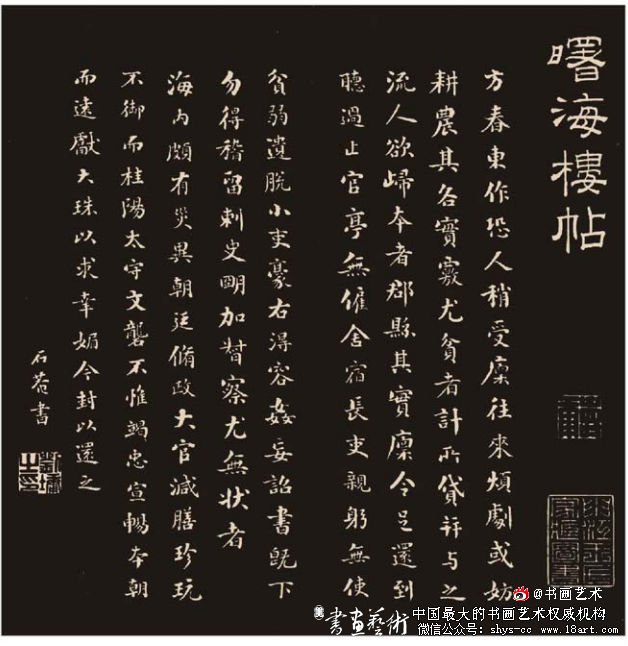 曙海樓帖
方春東作恐人稍受廩往來煩劇或妨
耕農其各實覈尤貧者計所貸并与之
流人欲歸本者郡縣其實廩令足還到
聽過止官亭無僱舍宿長吏親躬無使
貧弱遺脫小吏豪右得容姦妄詔書既下
勿得稽留刺史明加督察尤無狀者
海內頗有災異朝廷脩政大官減膳珍玩
不御而桂陽太守文礱不惟竭忠宣暢本朝
而遠獻大珠以求幸媚今封以還之
石菴書
劉墉之印
@书画艺术
書畫藝術
中国最大的书画艺术权威机构
微信公众号：shys-cc www.18art.com